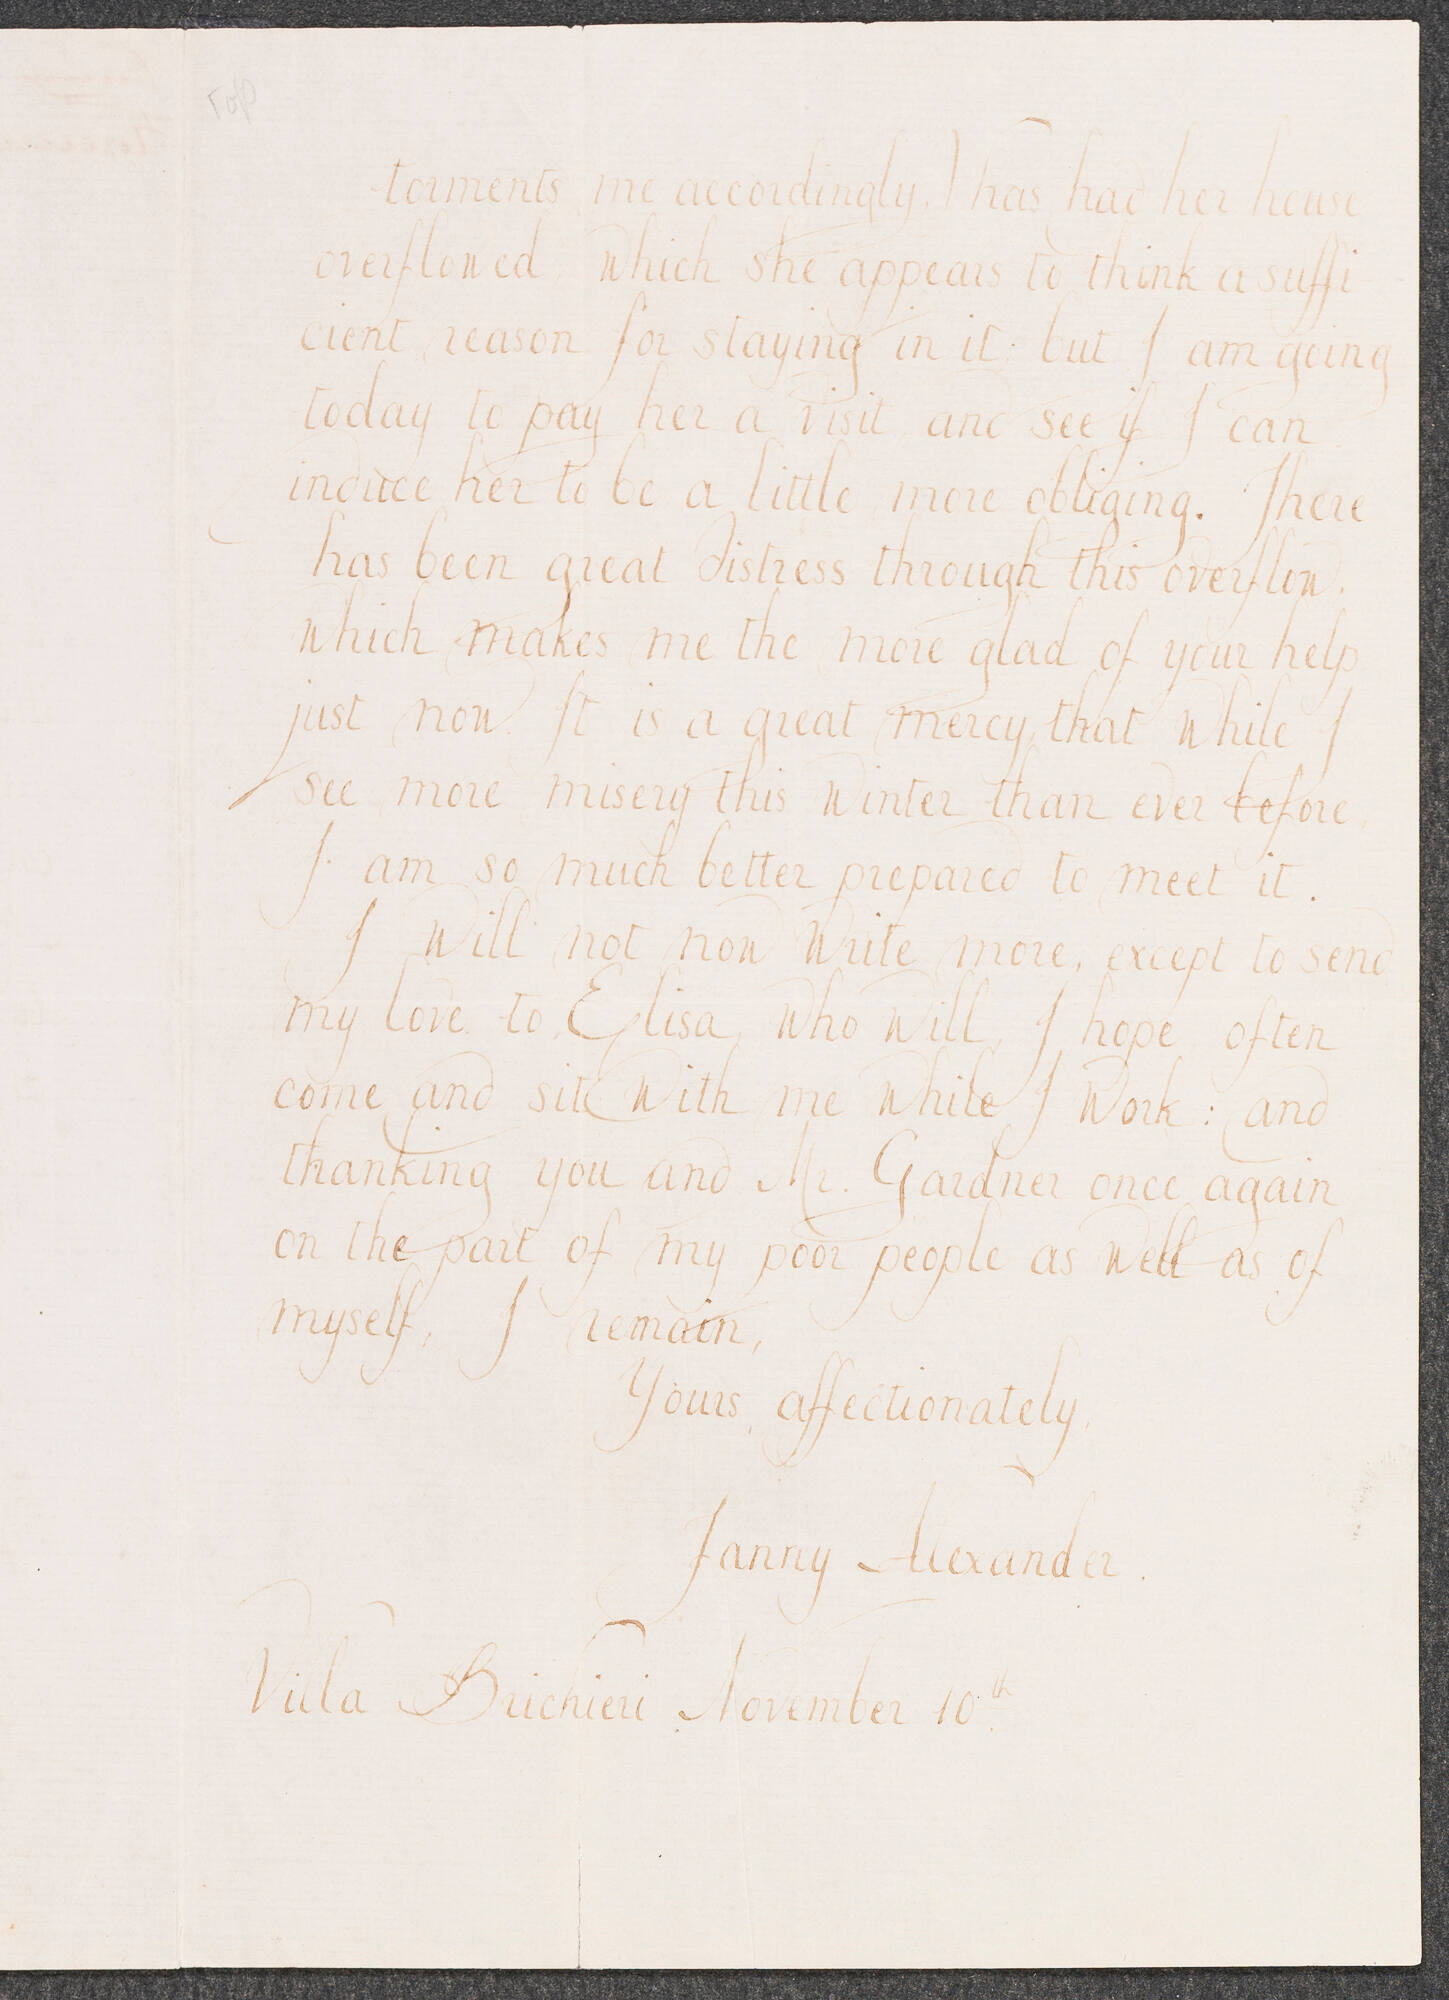 torments me accordingly. has had her house
overflowed, which she appears to think a suffi-
cient reason for staying in it: but I am going
today to pay her a visit and see if I can
induce her to be a little more obliging. There
has been great distress through this overflow,
which makes me the more glad of your help
just now. It is a great mercy that while I
see more misery this winter than ever before,
I am so much better prepared to meet it.
I will not now write more, except to send
my love to Elisa, who will, I hope often
come and sit with me while I work: and
thanking you and Mr. Gardner once again
on the part of my poor people as well as of
myself, I remain,
Yours affectionately,
Fanny Alexander.
Villa Brichieri November 10th.